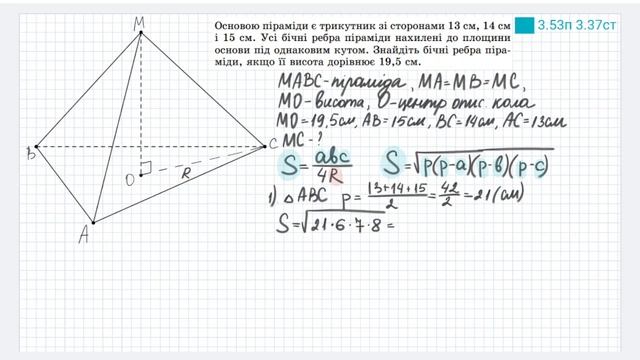 Основою піраміди є трикутник зі сторонами 13 см, 14 см
і 15 см. Усі бічні ребра піраміди нахилені до площини
основи під однаковим кутом. Знайдіть бічні ребра піра-
міди, якщо її висота дорівнює 19,5 см.
3.53п 3.37ст
MABC-піраміда, MA=MB=MC,
MO-висота, O-центр опис. кола
MO=19,5см, AB=15см, BC=14см, AC=13см
MC-?
S=abc/4R S=√p(p-a)(p-b)(p-c)
1) △ABC p=13+14+15/2=42/2=21(см)
S=√21·6·7·8=
M
B
C
O
R
A